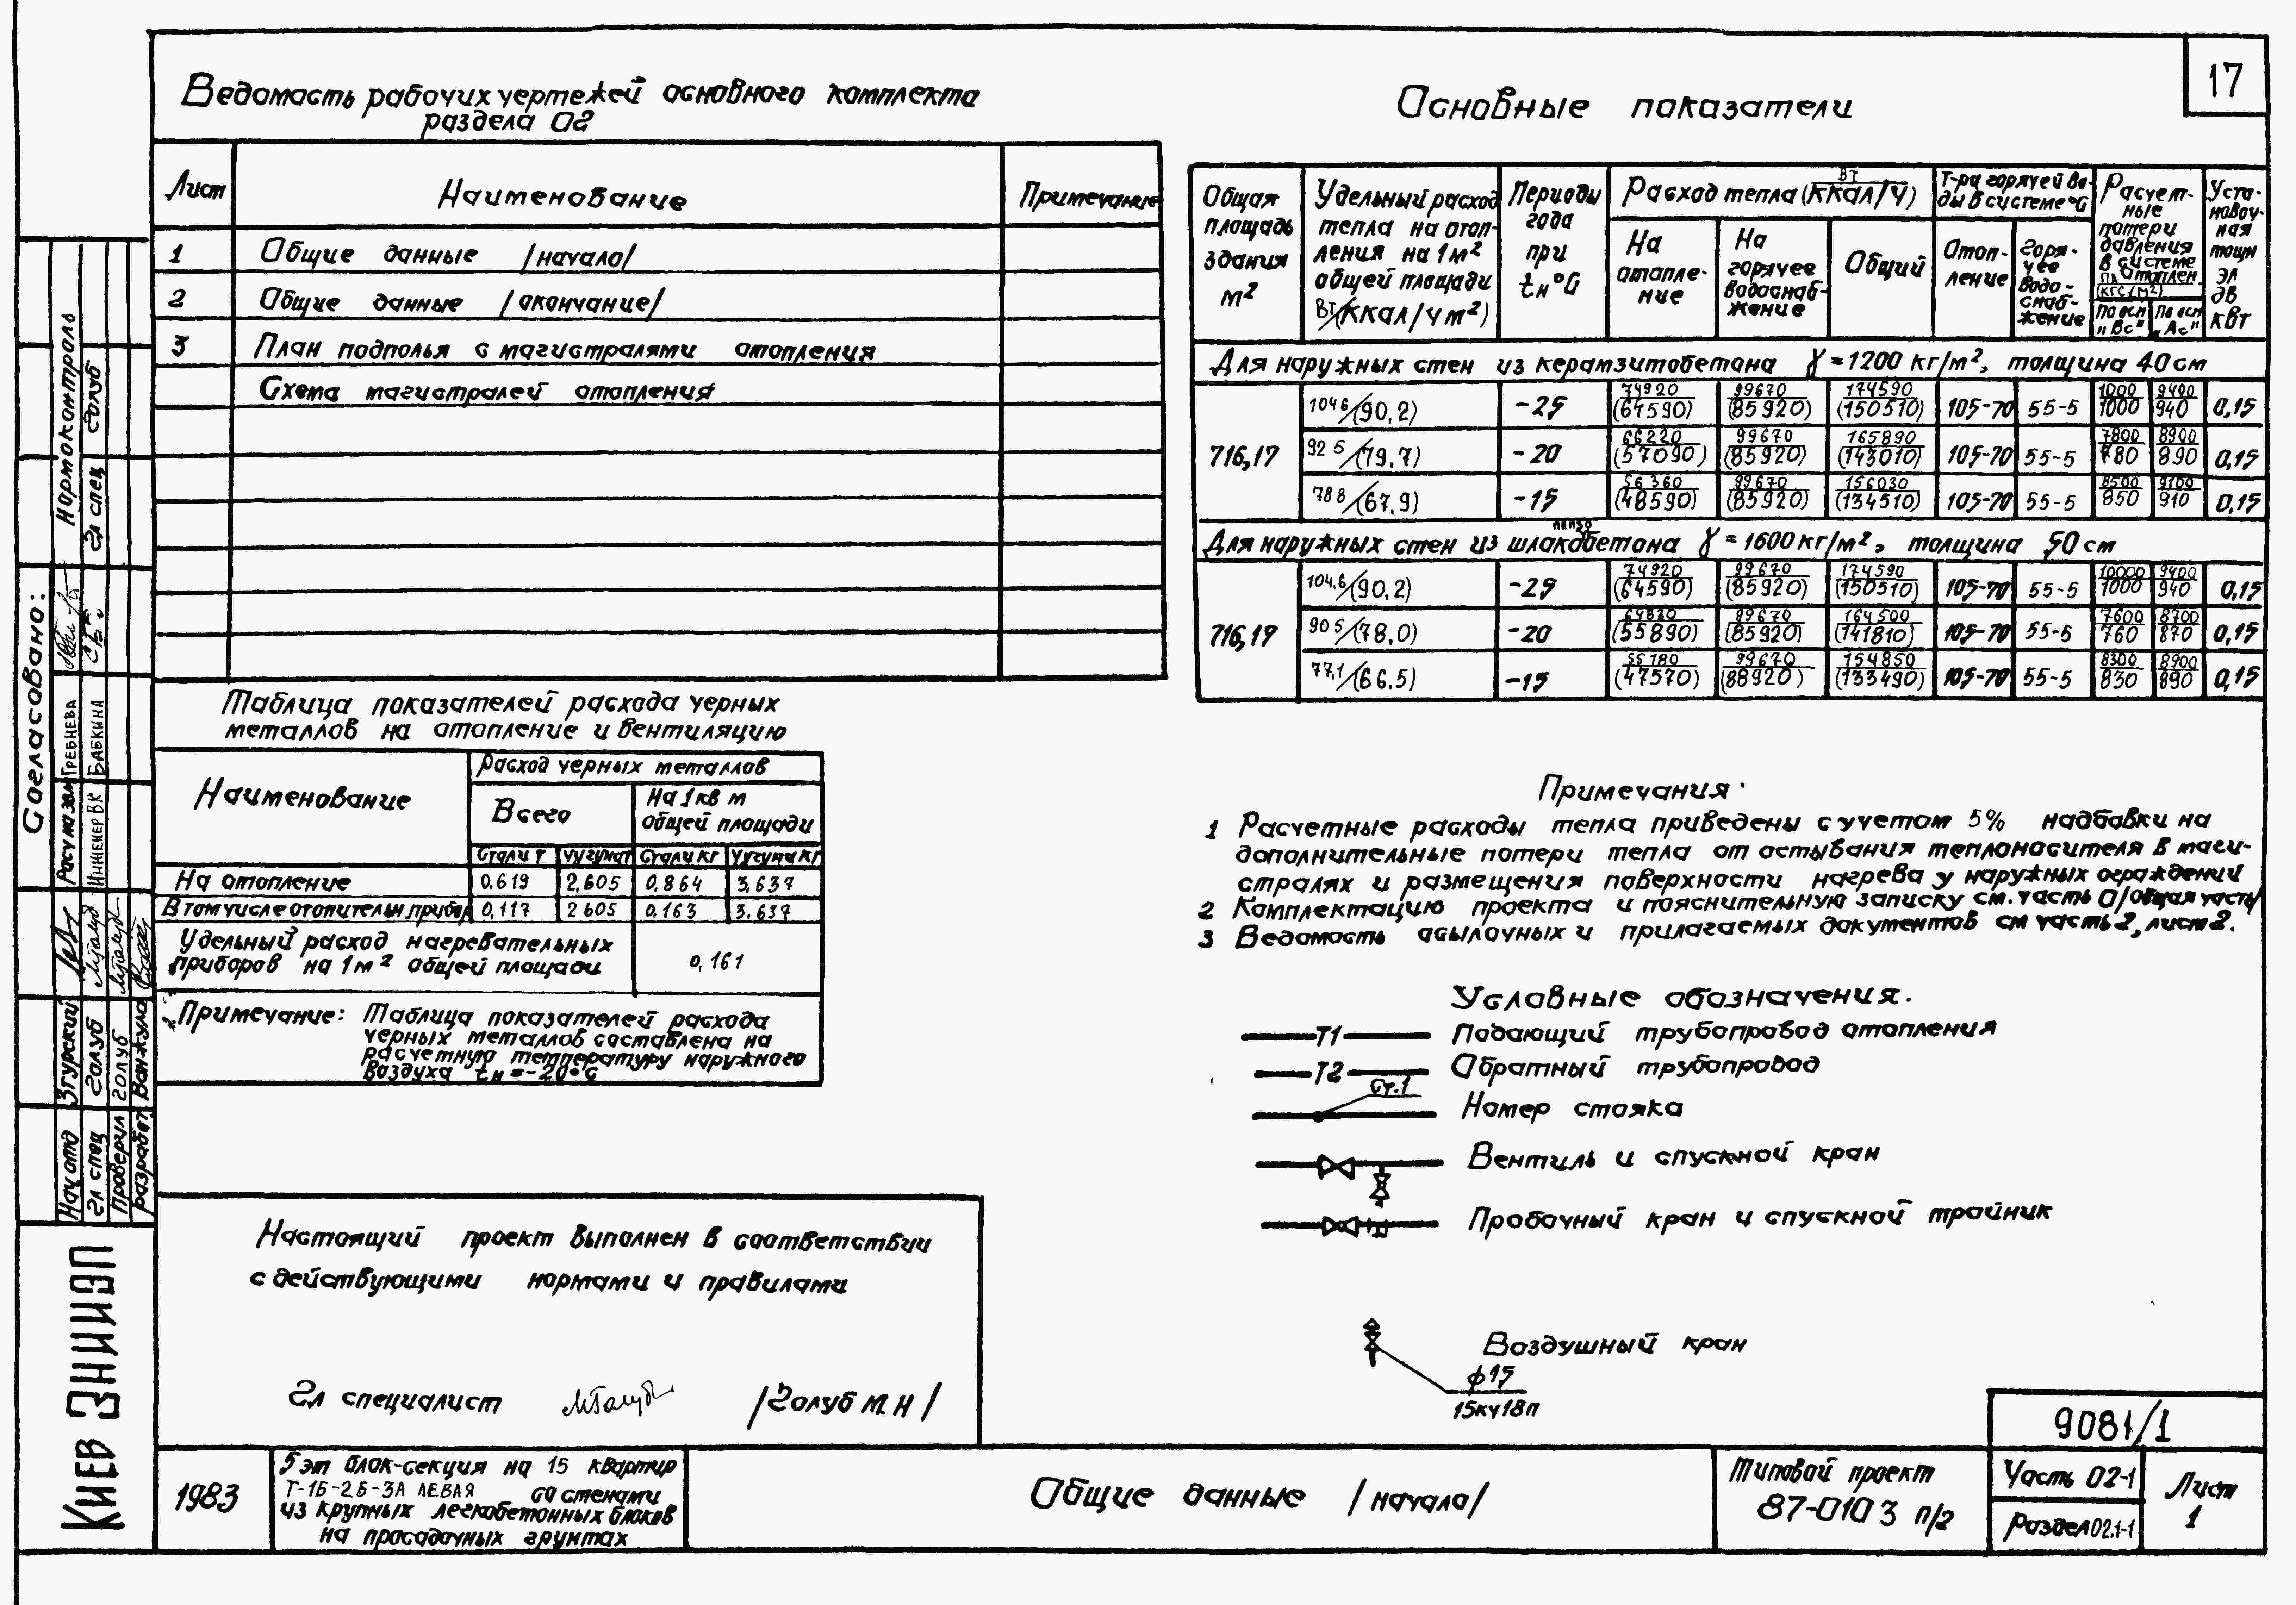 17
Ведомость рабочих чертежей основного комплекта
раздела 02
Лист Наименование Примечание
1 Общие данные /начало/
2 Общие данные /окончание/
3 План подполья с магистралями отопления
Схема магистралей отопления
Основные показатели
Общая площадь здания м²
Удельный расход тепла на отопления на 1м² общей площади Вт/(ккал/ч м²)
Периоды года при tн°C
Расход тепла Вт/(ккал/ч)
На отопление
На горячее водоснабжение
Общий
Т-ра горячей воды в системе °C
Отопление
Горячее водоснабжение
Расчетные потери давления в системе отоплен. Па (кгс/м²)
По оси "Вс" По оси "Ас"
Установоч-ная мощн эл дв квт
Для наружных стен из керамзитобетона γ = 1200 кг/м², толщина 40 см
716,17
104 6/(90,2) -25 74920 (64590) 99670 (85920) 174590 (150510) 105-70 55-5 1000 1000 9400 940 0,15
92 5/(79,7) -20 66220 (57090) 99670 (85920) 165890 (143010) 105-70 55-5 7800 780 8900 890 0,15
78 8/(67,9) -15 56360 (48590) 99670 (85920) 156030 (134510) 105-70 55-5 8500 850 9100 910 0,15
Для наружных стен из шлакопемзобетона γ = 1600 кг/м², толщина 50 см
716,17
104,6/(90,2) -25 74920 (64590) 99670 (85920) 174590 (150510) 105-70 55-5 10000 1000 9400 940 0,15
90 5/(78,0) -20 64830 (55890) 99670 (85920) 164500 (141810) 105-70 55-5 7600 760 8700 870 0,15
77,1/(66,5) -15 55180 (47570) 99670 (88920) 154850 (133490) 105-70 55-5 8300 830 8900 890 0,15
Таблица показателей расхода черных
металлов на отопление и вентиляцию
Наименование
Расход черных металлов
Всего
На 1 кв м
общей площади
Стали т Чугуна т Стали кг Чугуна кг
На отопление 0,619 2,605 0,864 3,637
В том числе отопительн. прибор 0,117 2 605 0,163 3,637
Удельный расход нагревательных
приборов на 1 м² общей площади 0,161
Примечание: Таблица показателей расхода
черных металлов составлена на
расчетную температуру наружного
воздуха tн = -20°С
Примечания.
1 Расчетные расходы тепла приведены с учетом 5% надбавки на
дополнительные потери тепла от остывания теплоносителя в маги-
стралях и размещения поверхности нагрева у наружных ограждений
2 Комплектацию проекта и пояснительную записку см. часть 0/общая часть/
3 Ведомость осылочных и прилагаемых документов см часть 2, лист 2.
Условные обозначения.
Т1 Подающий трубопровод отопления
Т2 Обратный трубопровод
Ст.1 Номер стояка
Вентиль и спускной кран
Пробочный кран и спускной тройник
Воздушный кран
ф15
15кч18п
Настоящий проект выполнен в соответствии
с действующими нормами и правилами
Гл специалист /Голуб М. Н/
Согласовано:
Нормоконтроль
Гл спец Голуб
Гребнева
Инженер ВК Бабкина
Нач отд Згурский
Гл спец Голуб
Проверил Голуб
Разработ Ванжула
Киев ЗНИИЭП
1983
5 эт блок-секция на 15 квартир
Т-1Б-2Б-3А ЛЕВАЯ со стенами
из крупных легкобетонных блоков
на просадочных грунтах
Общие данные /начало/
Типовой проект
87-010 3 п/2
9081/1
Часть 02-1
Раздел 02.1-1
Лист
1